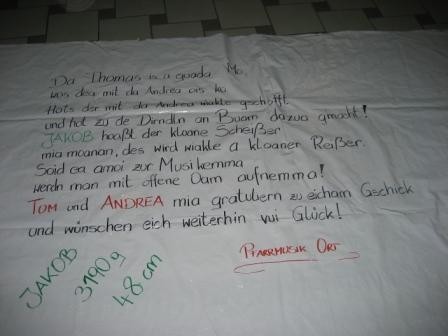 Da Thomas is a guada Mo,
wos dea mit da Andrea ois ko
Hots der mit da Andrea wiakle gschofft
und hot zu de Dirndln an Buam dazua gmocht!
JAKOB hoaßt der kloane Scheißer
mia moanan, des wird wiakle a kloaner Reißer.
Soid ea amoi zur Musi kemma
werdn man mit offene Oam aufnemma!
TOM und ANDREA mia gratuliern zu eicham Gschick
und wünschen eich weiterhin vui Glück!
PFARRMUSIK ORT
JAKOB
3190g
48 cm